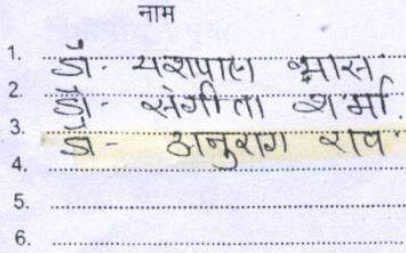 नाम
1. डॉ. यशपाल व्यास
2. डॉ. संगीता शर्मा.
3. डॉ - अनुराग राव
4.
5.
6.